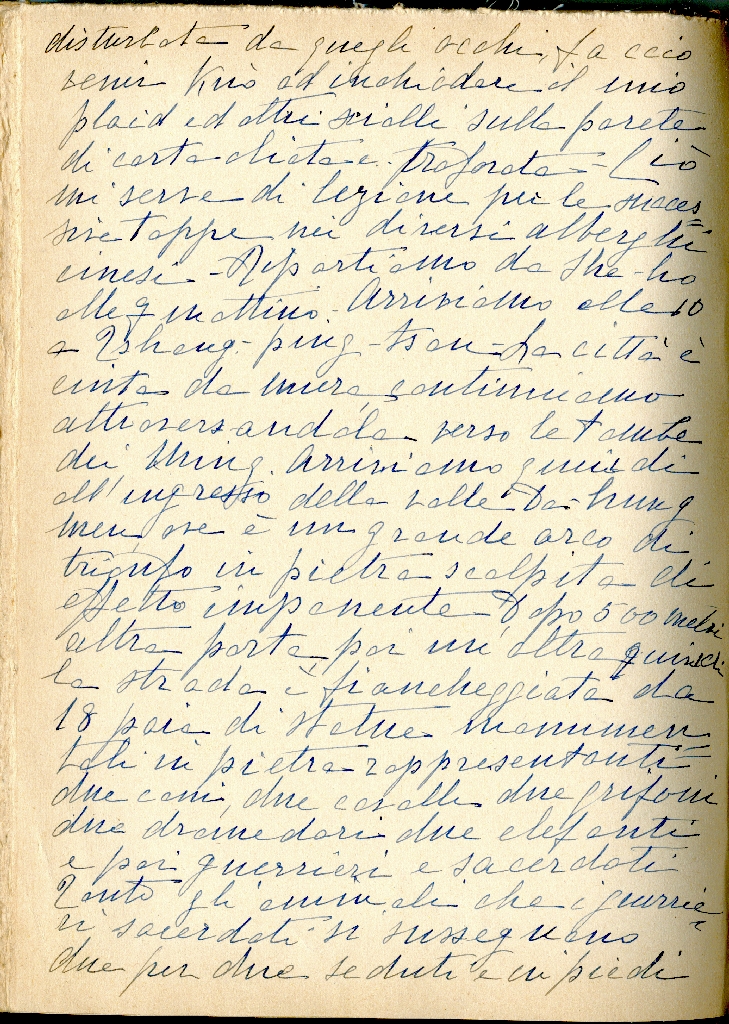 disturbata da quegli occhi, faccio
venir Kuò ad inchiodare il mio
plaid ed altri scialli sulla parete
di carta oliata e traforata - Ciò
mi serve di lezione per le succes=
sive tappe nei diversi alberghi
cinesi - Ripartiamo da Sha-ho
alle 7 mattino. Arriviamo alle 10
a Tshang-ping-tsou - La città è
cinta da mura, continuiamo
attraversandola verso le tombe
dei Ming. Arriviamo quindi
all'ingresso della valle Ta-hung
men, ove è un grande arco di
trionfo in pietra scolpita di
effetto imponente - Dopo 500 metri
altra porta, poi un'altra, quindi
la strada è fiancheggiata da
18 paia di statue monumen=
tali in pietra rappresentanti
due cani, due cavalli, due grifoni
due dromedari due elefanti
e poi guerrieri e sacerdoti
Tanto gli animali che i guerrie=
ri sacerdoti si susseguono
due per due seduti e in piedi